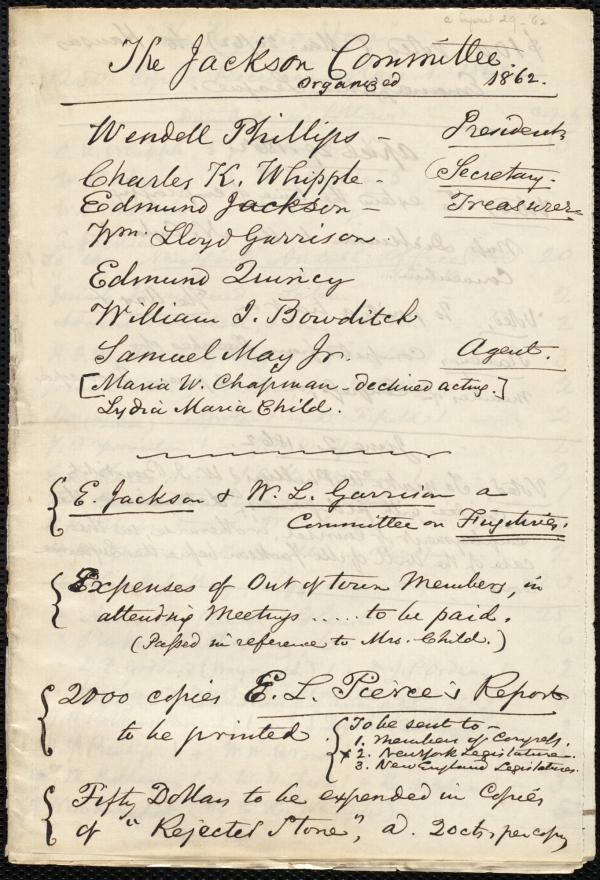 The Jackson Committee.
Organized 1862.
Wendell Phillips – President
Charles K. Whipple – Secretary.
Edmund Jackson – Treasurer
Wm. Lloyd Garrison.
Edmund Quincy
William I. Bowditch
Samuel May Jr. Agent.
[Maria W. Chapman – declined acting.]
Lydia Maria Child.
E. Jackson & W. L. Garrison a
Committee on Fugitives.
Expenses of Out of town Members, in
attending Meetings ..... to be paid.
(Passed in reference to Mrs. Child.)
2000 copies E. L. Pierce's Report
to be printed
To be sent to –
1. Members of Congress.
x 2. New York Legislature.
3. New England Legislatures.
Fifty Dollars to be expended in Copies
of "Rejected Stone", a). 20cts, per copy